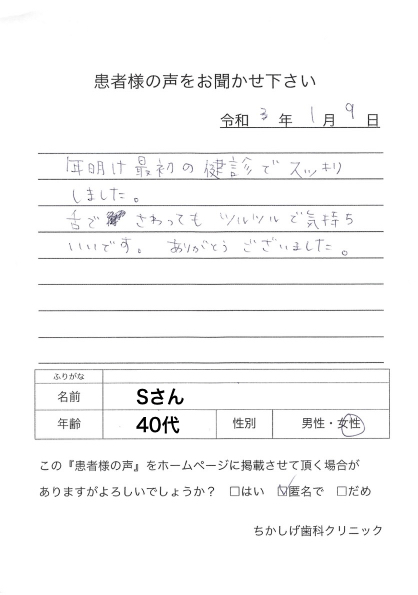 患者様の声をお聞かせ下さい
令和 3 年 1 月 9 日
年明け最初の健診でスッキリ
しました。
舌で さわっても ツルツルで気持ち
いいです。 ありがとう ございました。
ふりがな
名前 Sさん
年齢 40代 性別 男性・女性
この『患者様の声』をホームページに掲載させて頂く場合が
ありますがよろしいでしょうか？ □はい ☑匿名で □だめ
ちかしげ歯科クリニック